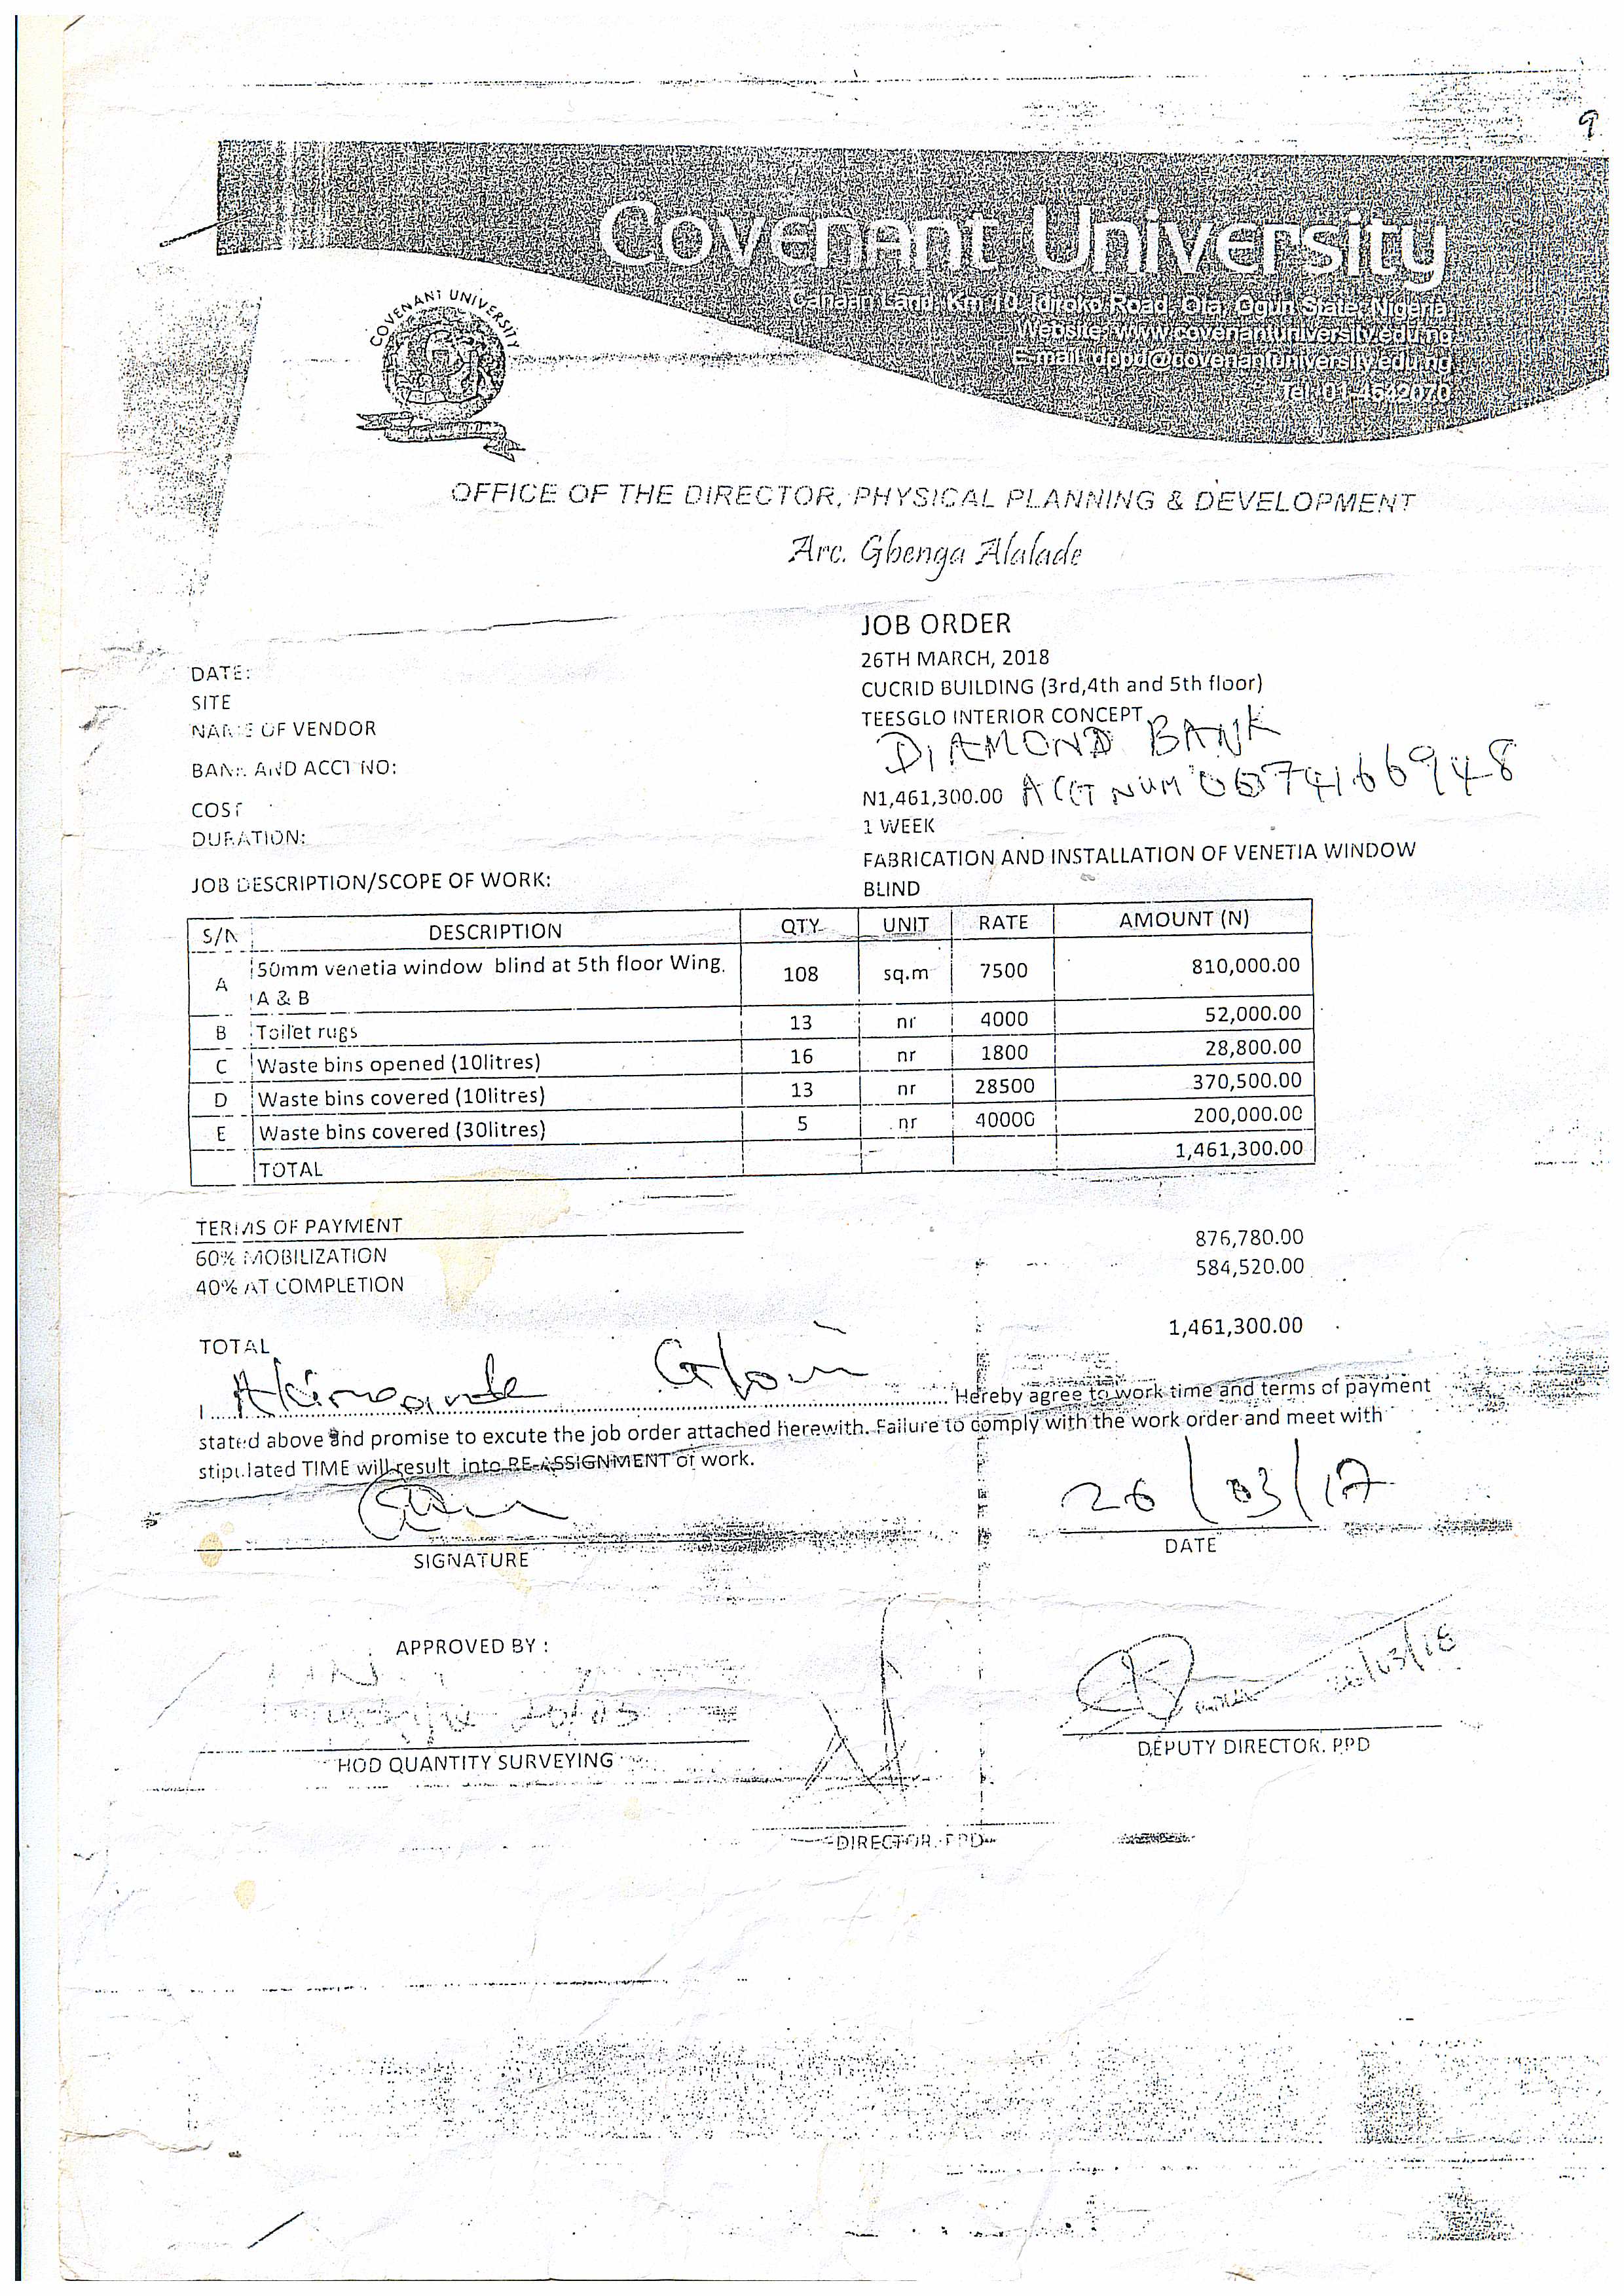 9
Covenant University
Canaan Land, Km 10, Idiroko Road, Ota, Ogun State, Nigeria
Website: www.covenantuniversity.edu.ng
E-mail: dppd@covenantuniversity.edu.ng
Tel: 01-4542070
COVENANT UNIVERSITY
OFFICE OF THE DIRECTOR, PHYSICAL PLANNING & DEVELOPMENT
Arc. Gbenga Alalade
JOB ORDER
DATE: 26TH MARCH, 2018
SITE CUCRID BUILDING (3rd,4th and 5th floor)
NAME OF VENDOR TEESGLO INTERIOR CONCEPT
BANK AND ACCT NO: DIAMOND BANK
COST N1,461,300.00 ACCT NUM
DURATION: 1 WEEK
JOB DESCRIPTION/SCOPE OF WORK: FABRICATION AND INSTALLATION OF VENETIA WINDOW
BLIND
S/N DESCRIPTION QTY UNIT RATE AMOUNT (N)
A 50mm venetia window blind at 5th floor Wing. 108 sq.m 7500 810,000.00
A & B
B Toilet rugs 13 nr 4000 52,000.00
C Waste bins opened (10litres) 16 nr 1800 28,800.00
D Waste bins covered (10litres) 13 nr 28500 370,500.00
E Waste bins covered (30litres) 5 nr 40000 200,000.00
TOTAL 1,461,300.00
TERMS OF PAYMENT
60% MOBILIZATION 876,780.00
40% AT COMPLETION 584,520.00
TOTAL 1,461,300.00
I Akinwande Hereby agree to work time and terms of payment
stated above and promise to excute the job order attached herewith. Failure to comply with the work order and meet with
stipulated TIME will result into RE-ASSIGNMENT of work.
26/03/17
SIGNATURE DATE
APPROVED BY :
26/03/18
HOD QUANTITY SURVEYING DEPUTY DIRECTOR. PPD
DIRECTOR. PPD